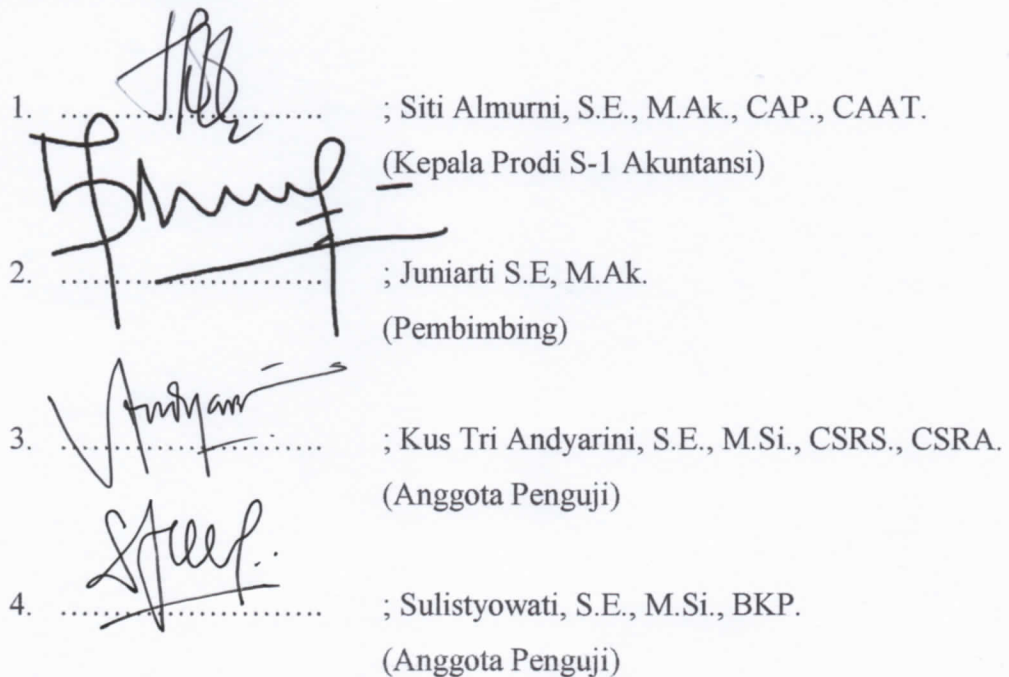 1. .......................... ; Siti Almurni, S.E., M.Ak., CAP., CAAT.
(Kepala Prodi S-1 Akuntansi)
2. .......................... ; Juniarti S.E, M.Ak.
(Pembimbing)
3. .......................... ; Kus Tri Andyarini, S.E., M.Si., CSRS., CSRA.
(Anggota Penguji)
4. .......................... ; Sulistyowati, S.E., M.Si., BKP.
(Anggota Penguji)